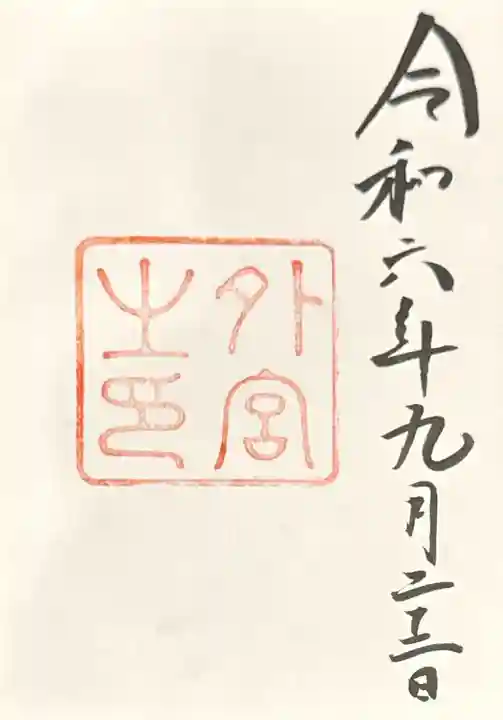 令和六年九月二十二日
外宮
之印